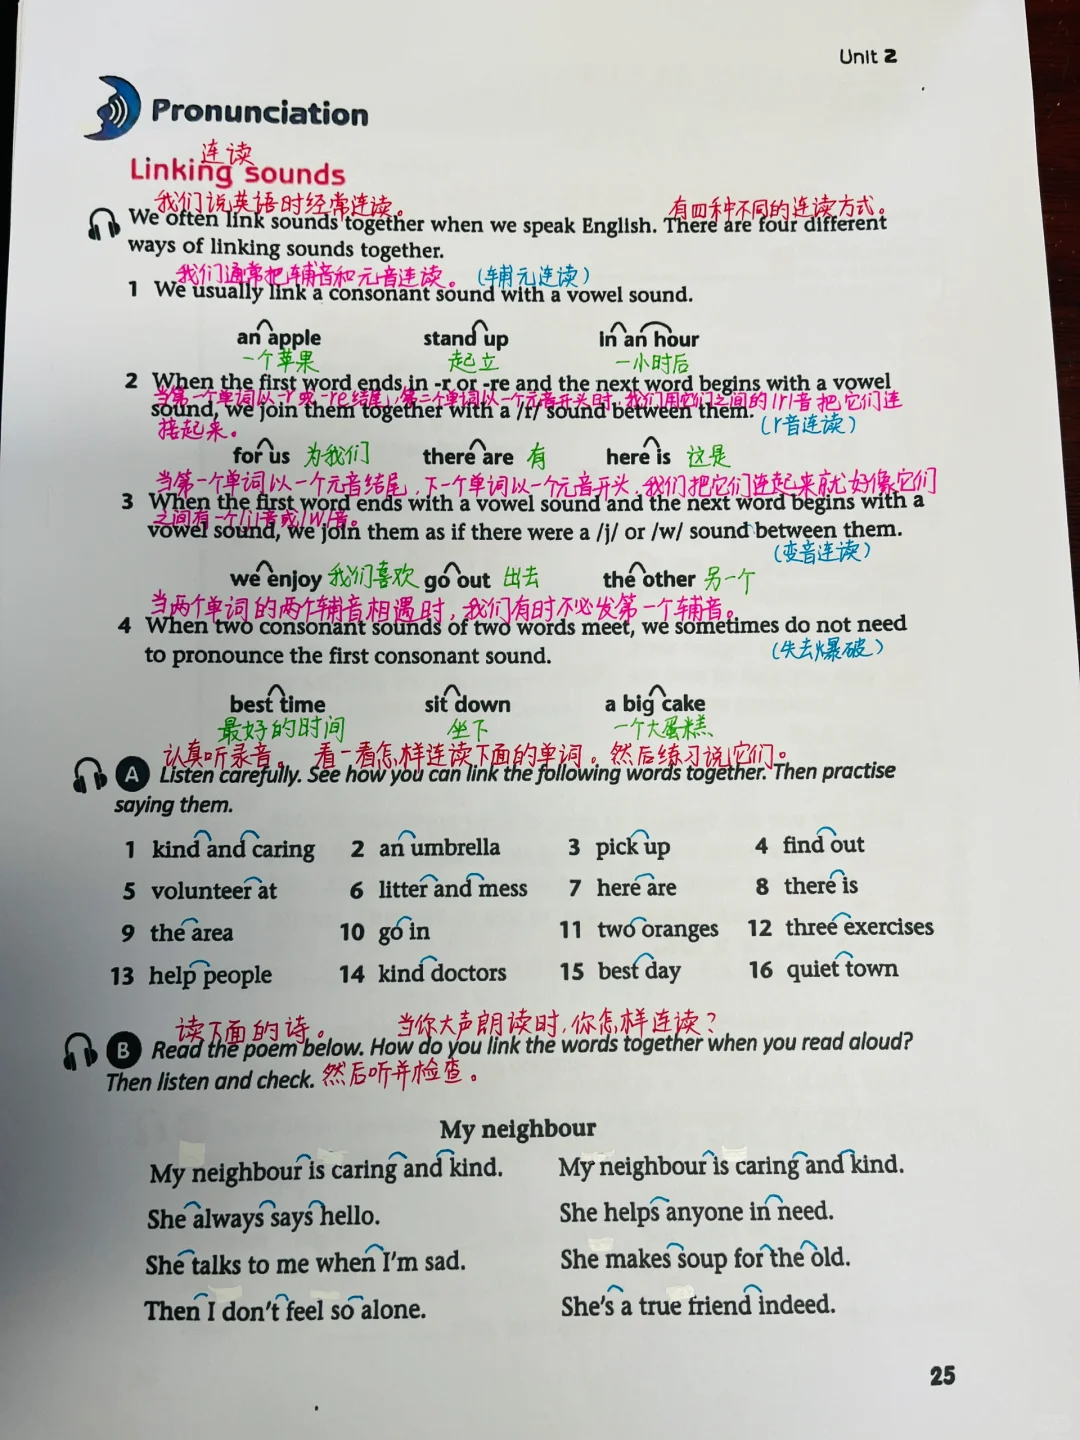 Unit 2
Pronunciation
连读
Linking sounds
我们说英语时经常连读。 有四种不同的连读方式。
We often link sounds together when we speak English. There are four different
ways of linking sounds together.
我们通常把辅音和元音连读。(辅元连读)
1 We usually link a consonant sound with a vowel sound.
an apple stand up in an hour
一个苹果 起立 一小时后
2 When the first word ends in -r or -re and the next word begins with a vowel
当第一个单词以-r或-re结尾,第二个单词以一个元音开头时,我们用它们之间的/r/音把它们连
sound, we join them together with a /r/ sound between them.
接起来。 (r音连读)
for us 为我们 there are 有 here is 这是
当第一个单词以一个元音结尾,下一个单词以一个元音开头,我们把它们连起来就好像它们
3 When the first word ends with a vowel sound and the next word begins with a
之间有一个/j/音或/w/音。
vowel sound, we join them as if there were a /j/ or /w/ sound between them.
(变音连读)
we enjoy 我们喜欢 go out 出去 the other 另一个
当两个单词的两个辅音相遇时,我们有时不必发第一个辅音。
4 When two consonant sounds of two words meet, we sometimes do not need
to pronounce the first consonant sound. (失去爆破)
best time sit down a big cake
最好的时间 坐下 一个大蛋糕
认真听录音。 看一看怎样连读下面的单词。然后练习说它们。
A Listen carefully. See how you can link the following words together. Then practise
saying them.
1 kind and caring 2 an umbrella 3 pick up 4 find out
5 volunteer at 6 litter and mess 7 here are 8 there is
9 the area 10 go in 11 two oranges 12 three exercises
13 help people 14 kind doctors 15 best day 16 quiet town
读下面的诗。 当你大声朗读时,你怎样连读?
B Read the poem below. How do you link the words together when you read aloud?
Then listen and check. 然后听并检查。
My neighbour
My neighbour is caring and kind.
She always says hello.
She talks to me when I'm sad.
Then I don't feel so alone.
My neighbour is caring and kind.
She helps anyone in need.
She makes soup for the old.
She's a true friend indeed.
25